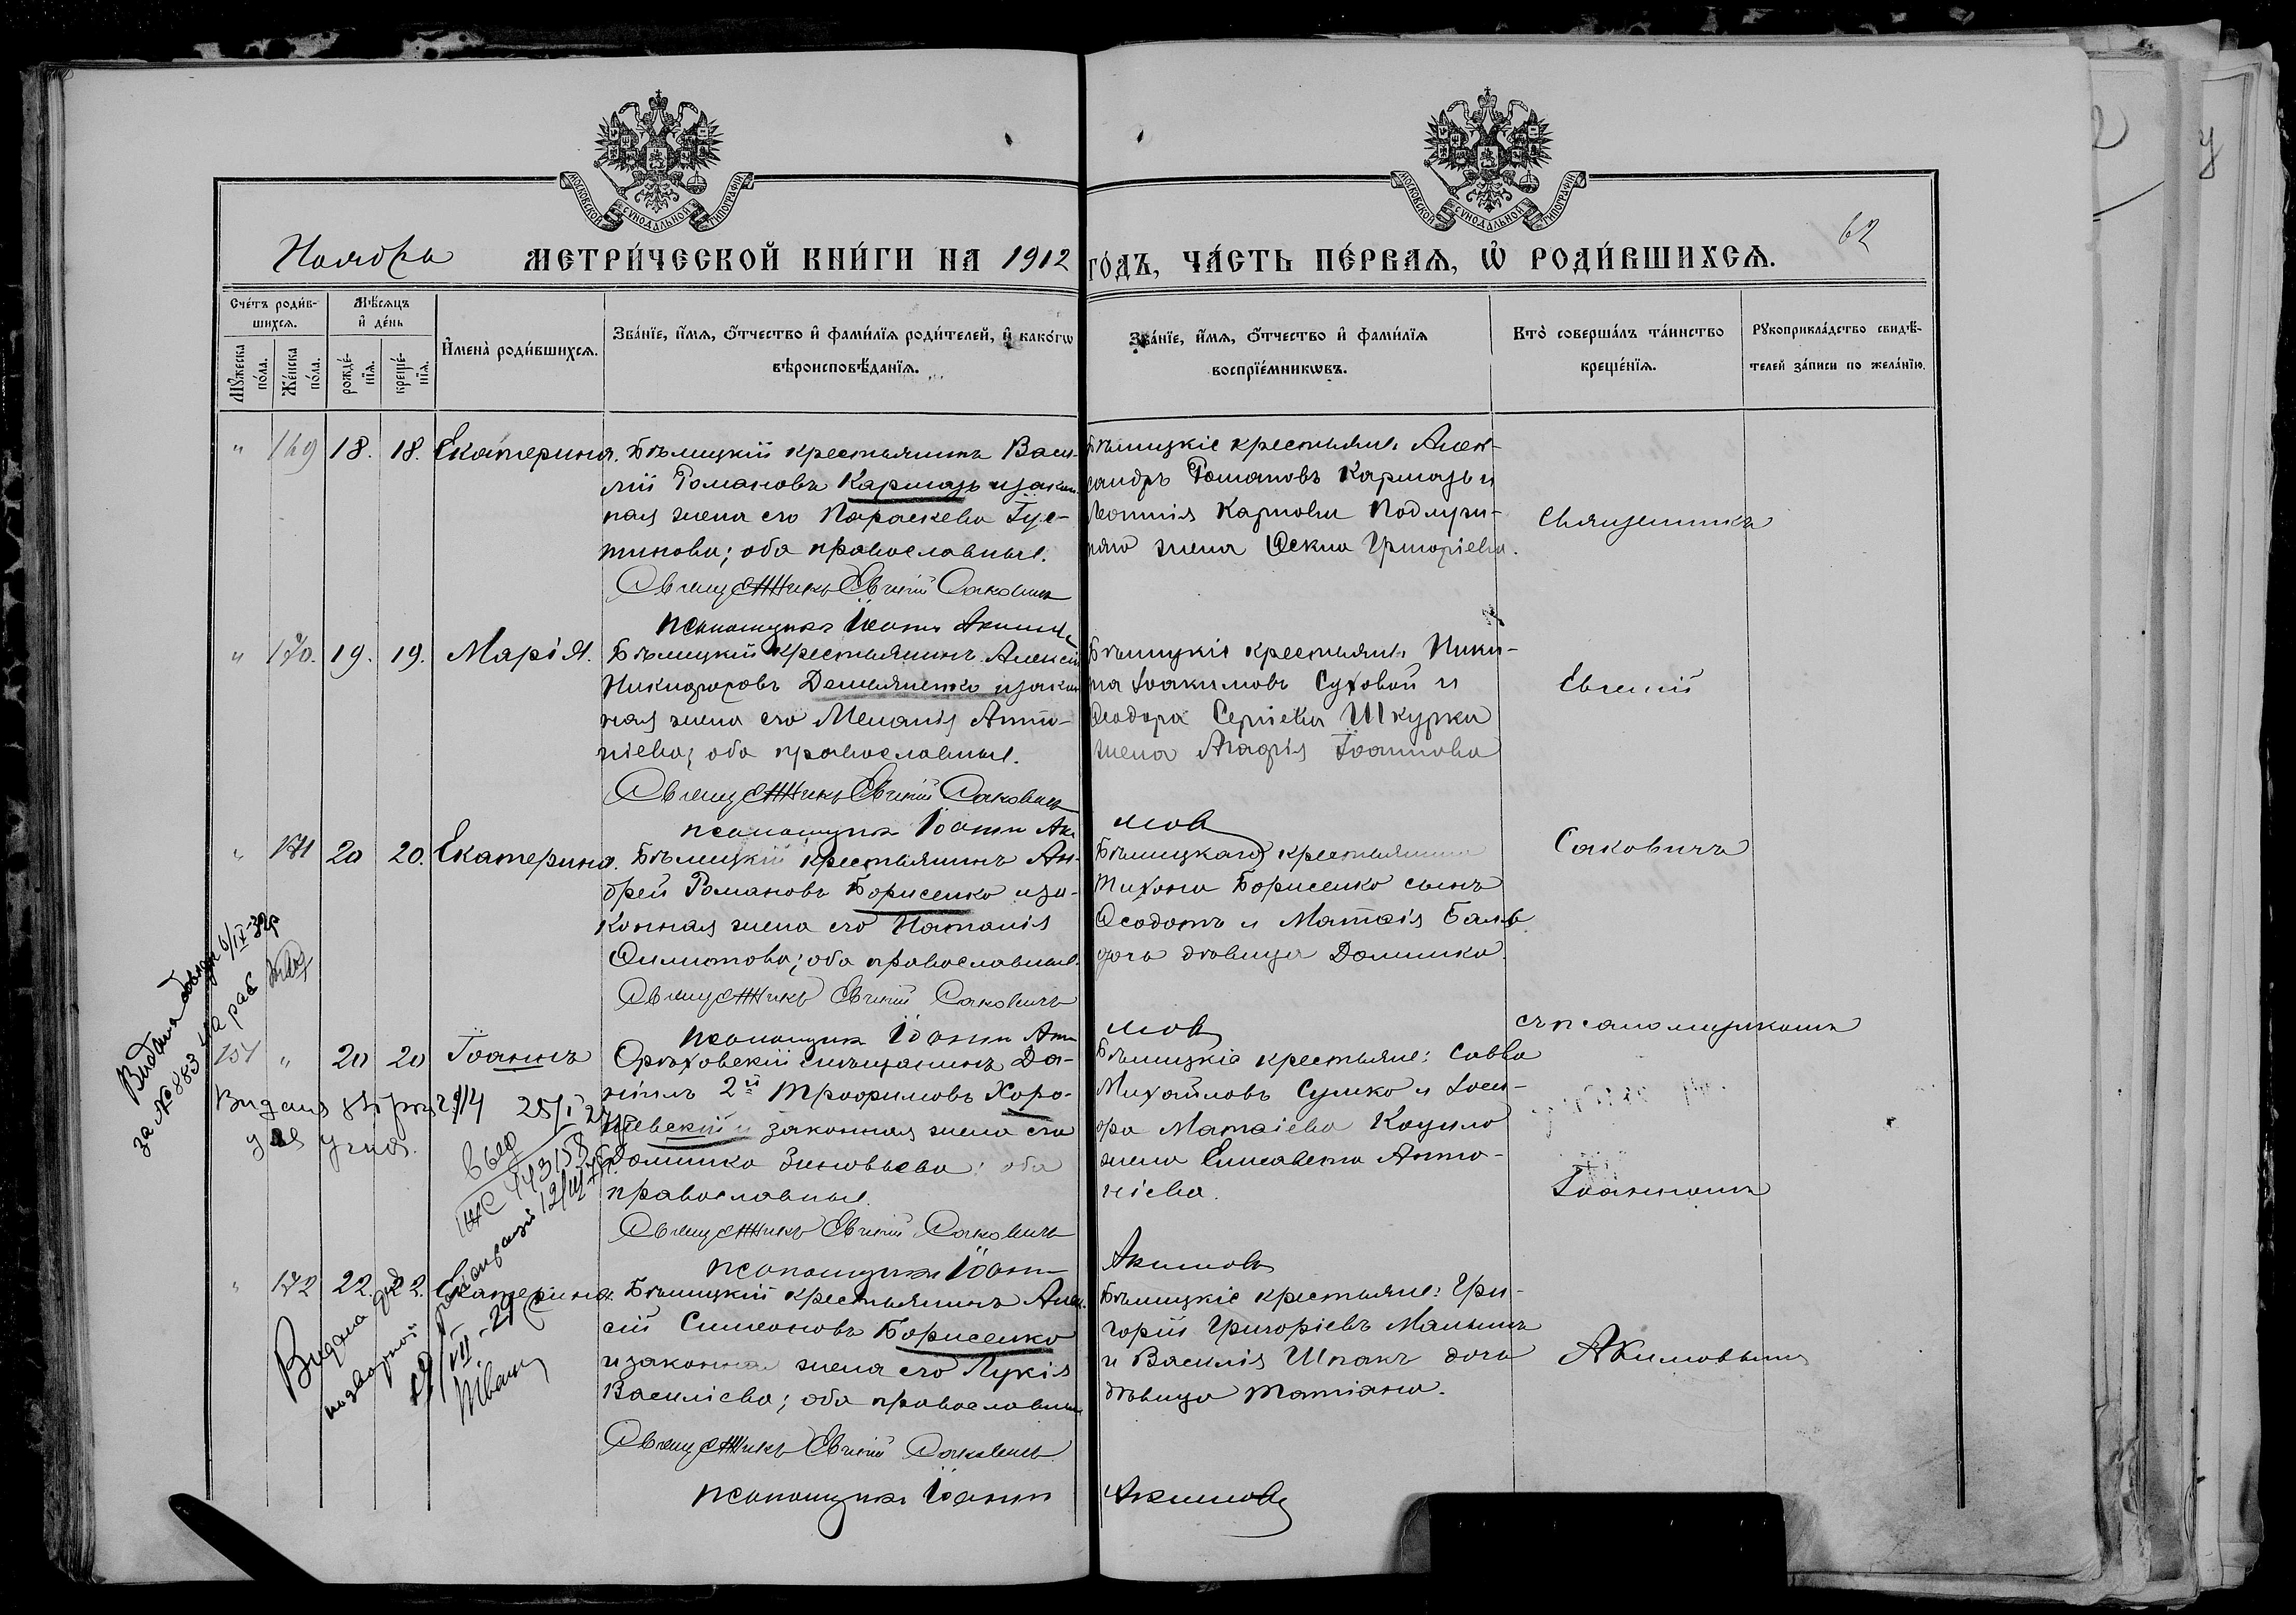 МОСКОВСКОЙ СѴНОДАЛЬНОЙ ТИПОГРАФІИ
МОСКОВСКОЙ СѴНОДАЛЬНОЙ ТИПОГРАФІИ
Ноября
МЕТРИ́ЧЕСКОЙ КНИ́ГИ НА 1912 ГО́ДЪ, ЧА́СТЬ ПЕ́РВАЯ, Ѡ҆ РОДИ́ВШИХСЯ.
62
Сче́тъ роди́в-
шихся.
Мѣ́сяцъ
и҆ де́нь
Мꙋ́жеска по́ла.
Же́нска по́ла.
рожде́-
нїя.
креще́-
нїя.
И҆мена̀ роди́вшихся.
Зва́нїе, и҆́мя, ѻ҆́тчество и҆ фами́лїя роди́телей, и҆ како́гѡ
вѣроисповѣ́данїя.
Зва́нїе, и҆́мя, ѻ҆́тчество и҆ фами́лїя
воспрїе́мникѡвъ.
Кто̀ соверша́лъ та́инство
креще́нїя.
Рꙋкоприкла́дство свидѣ́-
телей за́писи по жела́нїю.
" 169 18. 18. Екатерина. Бѣлицкій крестьянинъ Васи-
лій Романовъ Кармазь и закон.
ная жена его Параскева Іус-
тинова; оба православные.
Священникъ Евгеній Саковичъ
псаломщикъ Іоаннъ Акимовъ
Бѣлицкіе крестьяне: Алек-
сандръ Романовъ Кармазь и
Леонтія Карпова
жена Ѳекла Григоріева.
Священникъ
" 170. 19. 19. Марія. Бѣлицкій крестьянинъ Алексій
Никифоровъ Демьяненко и закон
ная жена его Меланія Анто-
ніева; оба православные.
Священникъ Евгеній Саковичъ
псаломщикъ Іоаннъ Аки
мовъ
Бѣлицкіе крестьяне: Ники-
та Іоакимовъ Суховой и
Ѳеодора Сергіева Шкурки
жена Агафія Іоаннова
Евгеній
" 171 20 20. Екатерина. Бѣлицкій крестьянинъ Ан-
дрей Романовъ Борисенко и за-
конная жена его Наталія
Филиппова; оба православные.
Священникъ Евгеній Саковичъ
псаломщикъ Іоаннъ Аки
мовъ
Бѣлицкаго крестьянина
Тихона Борисенко сынъ
Ѳеодотъ и Матѳія
дочь дѣвица Домника.
Саковичъ
151 " 20 20 Іоаннъ Орѣховскій мѣщанинъ Да-
ніилъ 2й Трофимовъ Хоро-
шевскій и законная жена его
Домника Зиновьева; оба
православные.
Священникъ Евгеній Саковичъ
псаломщикъ Іоаннъ
Акимовъ
Бѣлицкіе крестьяне: Савва
Михайловъ Сушко и
Матѳіева
жена Елисавета Анто-
ніева.
съ псаломщикомъ
Іоанномъ
" 172 22. 22. Екатерина. Бѣлицкій крестьянинъ Алек-
сій Симеоновъ Борисенко
и законная жена его Лукія
Василіева; оба православные
Священникъ Евгеній Саковичъ
псаломщикъ Іоаннъ
Акимовъ
Бѣлицкіе крестьяне: Гри-
горій Григоріевъ
и Василія Шпакъ дочь
дѣвица Татіана.
Акимовымъ
за № 883